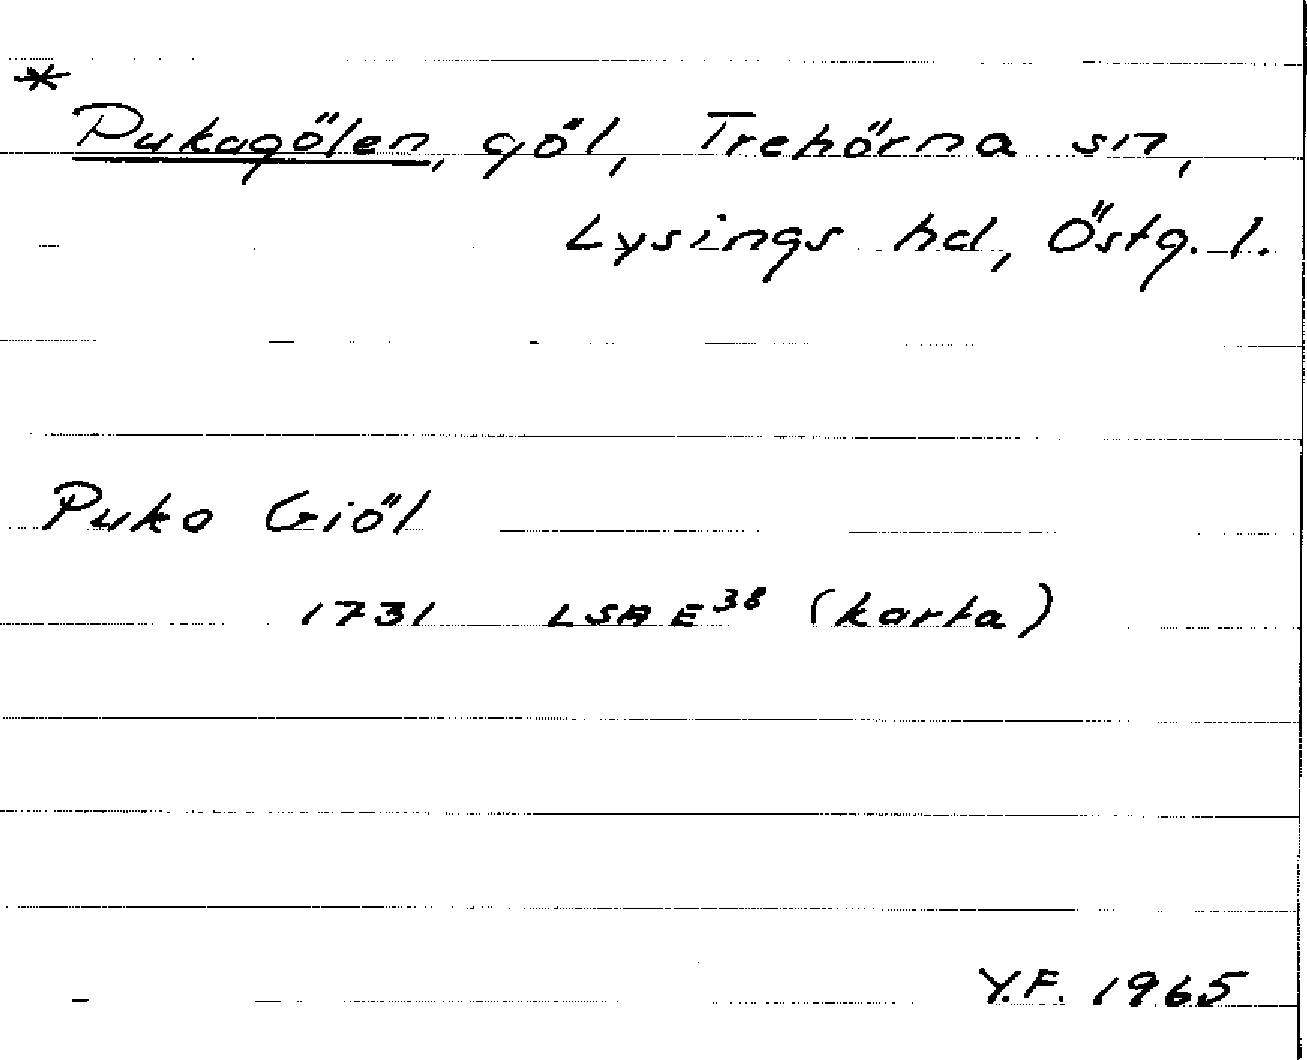 *
Pukagölen, göl, Trehörna sn,
Lysings hd, Östg. l.
Puka Giöl
1731 LSA E³⁸ (karta)
Y.F. 1965